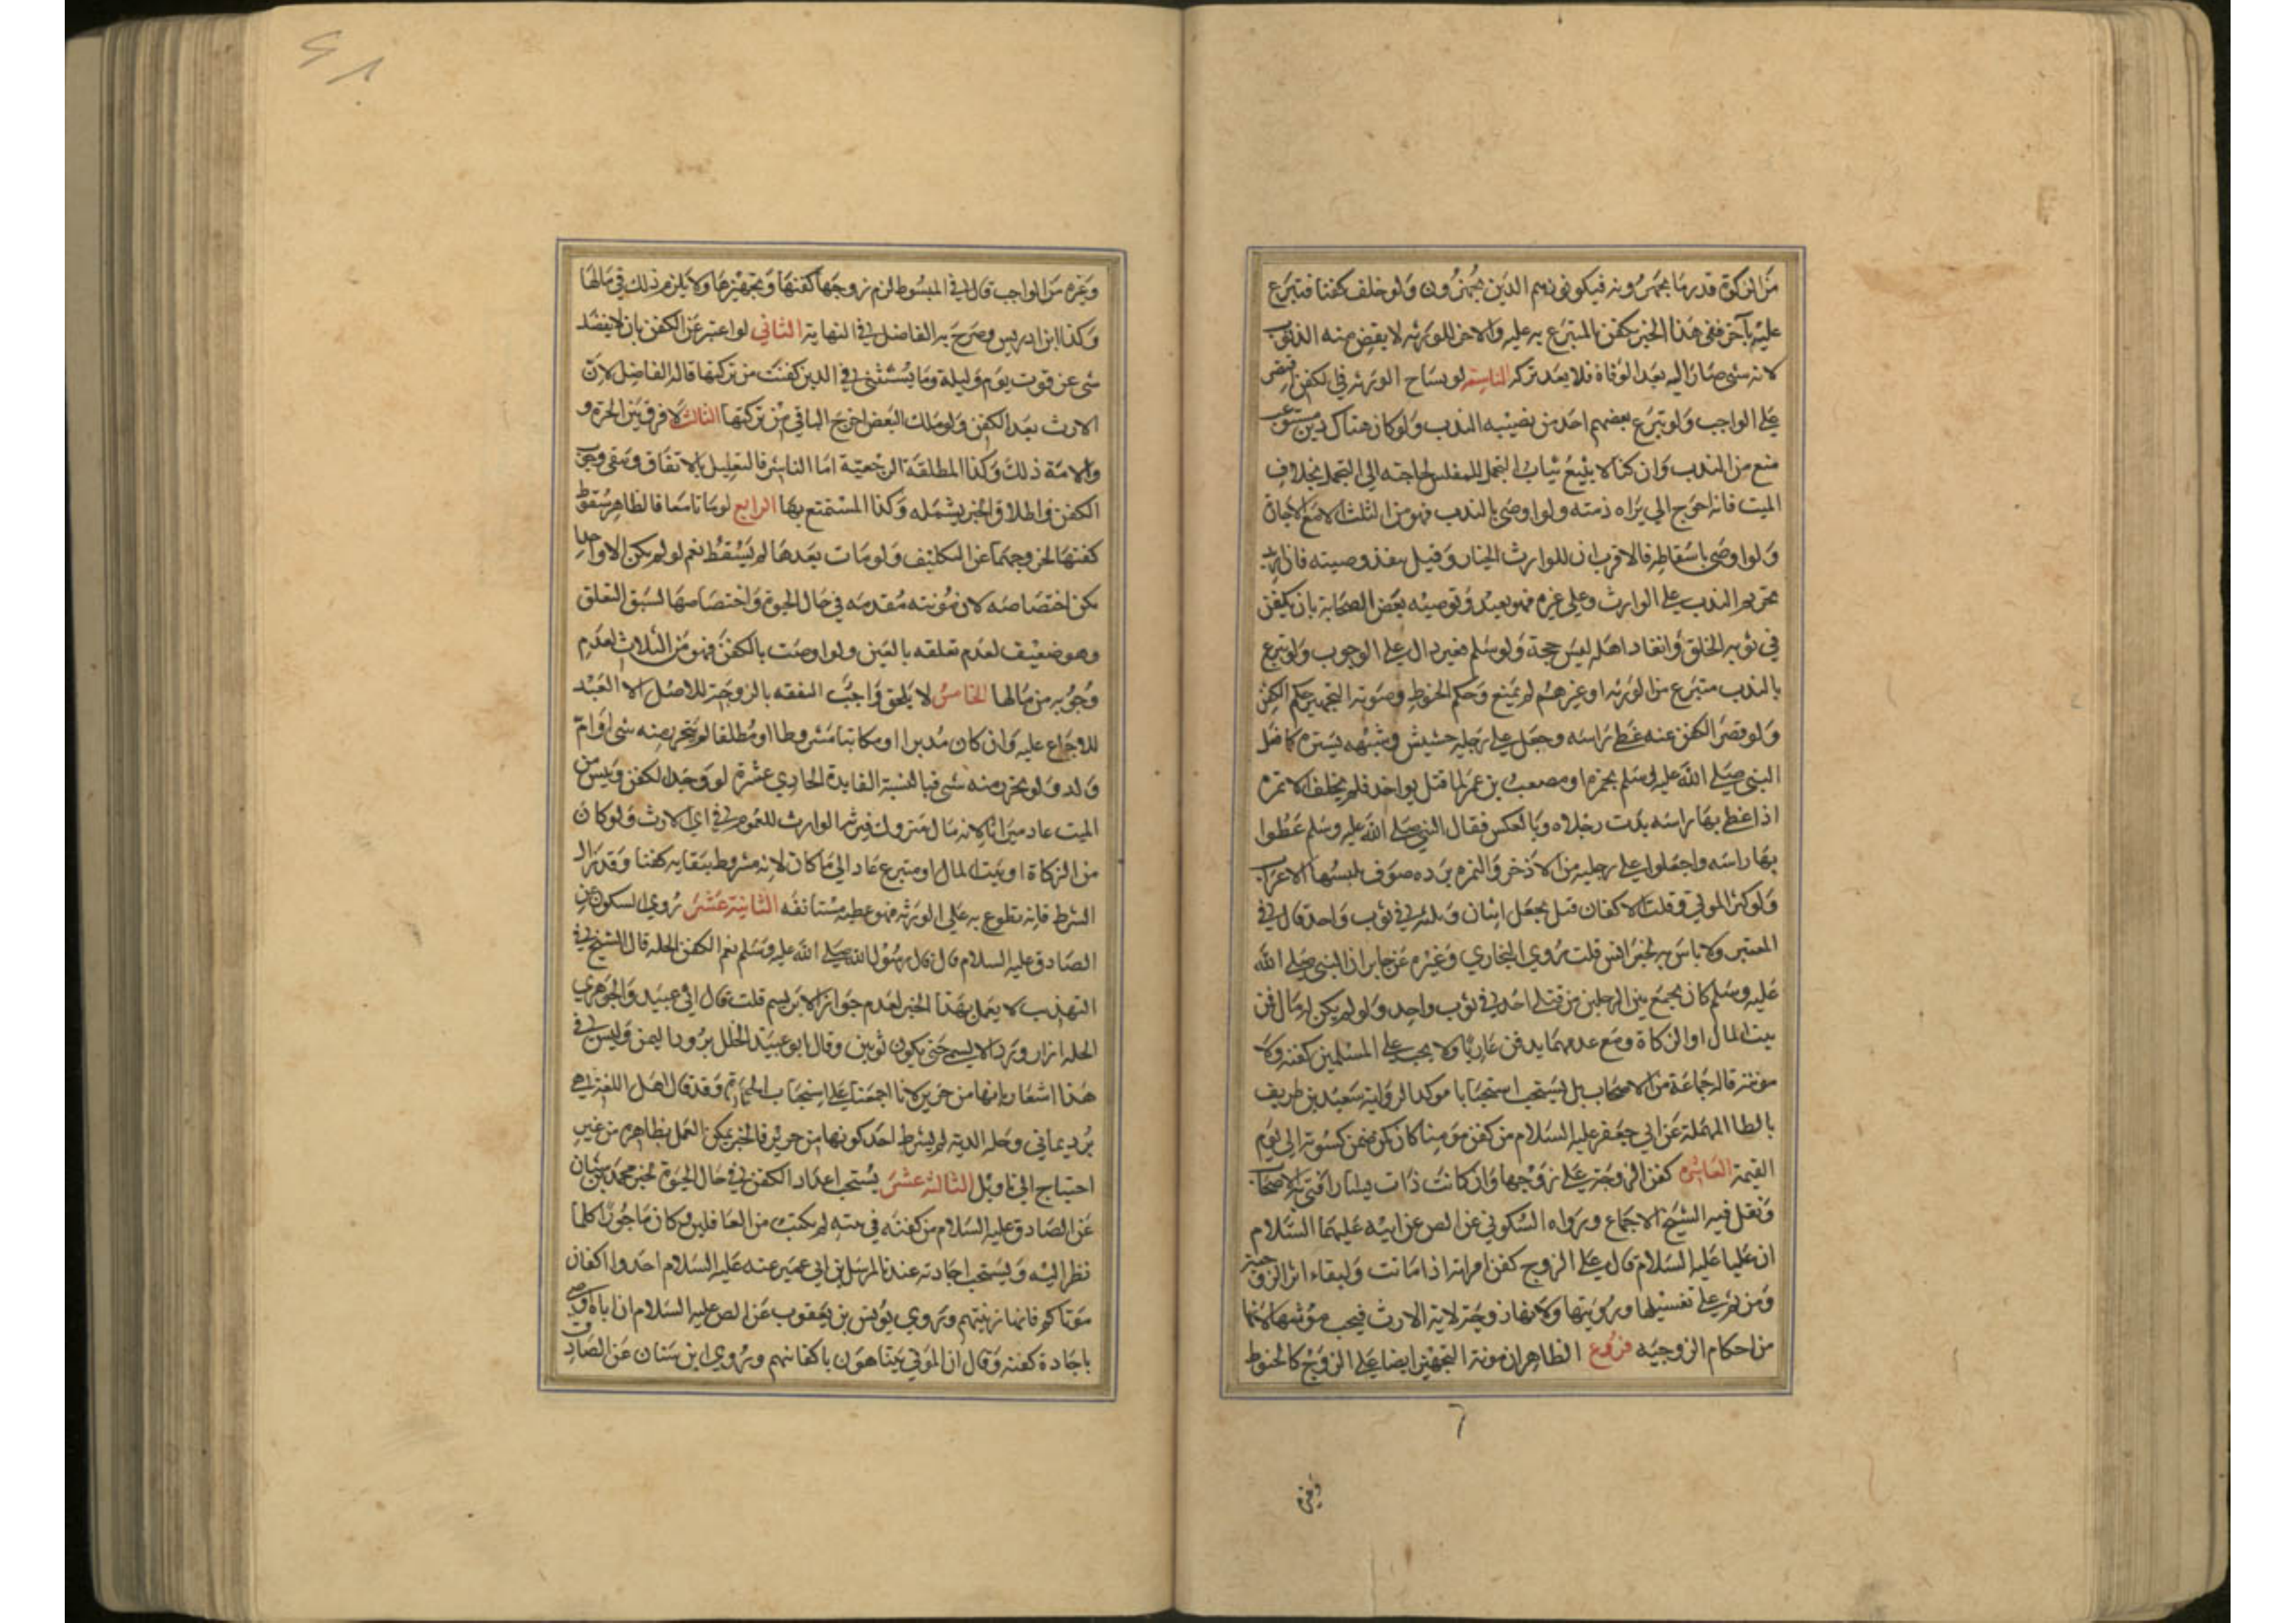 من الزكوة قدر ما يجهزونه فيكونون هم الذين يجهزون ولو خلف كفنا فتبرع
عليه بآخر ففي هذا الخبر يكفن بالمتبرع به عليه والاخر للورثه لا يقضي منه الدين
لانه شئ صار اليه بعد الوفاة فلا يعد تركه التاسعه لو تشاح الورثه في الكفن اقتصر
على الواجب ولو تبرع بعضهم اخذ من نصيبه الندب ولو كان هناك دين مستوعب
منع من الندب وان كنا لا نبيع ثياب التجمل للمفلس لحاجته الى التجمل بخلاف
الميت فانه احوج الي براه ذمته ولو اوصي بالندب فهو من الثلث الا مع الاجازة
ولو اوصي باسقاطه فالاقرب ان للوارث الخيار وقيل ينفذ وصيته فان اريد
تحريم الندب على الوارث وعلي غيره فهو بعيد وتوصيه بعض الصحابة بان يكفن
في ثوبه الخلق وانفاد اهله ليس حجة ولو سلم فغير دال على الوجوب ولو تبرع
بالندب متبرع من الورثه او غيرهم لم يمنع وحكم الحنوط ومئونة التجهيز حكم الكفن
ولو قصر الكفن عنه غطي راسه وجعل على رجليه حشيش وشبهه يستره كما فعل
النبي صلى الله عليه وسلم بحمزه او مصعب بن عمير لما قتل يوم احد فلم يخلف الا نمره
اذا غطي بها راسه بدت رجلاه وبالعكس فقال النبي صلى الله عليه وسلم غطوا
بها راسه واجعلوا على رجليه من الاذخر والنمره برده صوف يلبسها الاعراب
ولو كثر الموتي وقلت الاكفان قيل يجعل اثنان وثلثه في ثوب واحد قال في
المعتبر ولا باس به لخبر انس قلت روي البخاري وغيره عن جابر ان النبي صلى الله
عليه وسلم كان يجمع بين الرجلين من قتلى احد في ثوب واحد ولو لم يكن له مال فمن
بيت المال او الزكاة ومع عدمهما يدفن عاريا ولا يجب على المسلمين كفنه ولا
مونته قاله جماعة من الاصحاب بل يستحب استحبابا موكدا لرواية سعيد بن طريف
بالطا المهملة عن ابي جعفر عليه السلام من كفن مومنا كان كمن ضمن كسوته الى يوم
القيمة العاشره كفن الزوجة على زوجها وان كانت ذات يسار افتي به الاصحاب
ونقل فيه الشيخ الاجماع ورواه السكوني عن الص عن ابيه عليهما السلام
ان عليا عليه السلام قال على الزوج كفن امراته اذا ماتت ولبقاء اثر الزوجية
ومن ثم على تغسيلها ورويتها ولانها زوجة لاية الارث فيجب مؤنتها لانها
من احكام الزوجيه فروع الظاهر ان مونة التجهيز ايضا على الزوج كالحنوط
وغيره
وغيره من الواجب قال في المبسوط لزم زوجها كفنها وتجهيزها ولا يلزم ذلك في مالها
وكذا ابن ادريس وصرح به الفاضل في النهاية الثاني لو اعسر عن الكفن بان لا يفضل
شي عن قوت يوم وليلة وما يستثنى في الدين كفنت من تركتها قاله الفاضل لان
الارث بعد الكفن ولو ملك البعض اخرج الباقي من تركتها الثالث لا فرق بين الحرة و
والامة ذلك وكذا المطلقة الرجعية اما الناشز فالتعليل بالانفاق وينفى وجوب
الكفن واطلاق الخبر يشمله وكذا المستمتع بها الرابع لو ماتا معا فالظاهر سقوط
كفنها لخروجهما عن التكليف ولو مات بعدها لم يسقط نعم لو لم يكن الا واحدا
يمكن اختصاصه لان مئونته مقدمه في حال الحيوة واختصاصها لسبق التعلق
وهو ضعيف لعدم تعلقه بالعين ولو اوصت بالكفن فهو من الثلاث لعدم
وجوبه من مالها الخامس لا يلحق واجب النفقه بالزوجة للاصل الا العبد
للاجماع عليه وان كان مدبرا او مكاتبا مشروطا او مطلقا لم يتحرر منه شي او ام
ولد ولو تحرر منه شي فبالنسبة الفايدة الحادي عشرة لو وجد الكفن ويئس من
الميت عاد ميراثا لانه مال متروك فيرثه الوارث للعموم في اي الارث ولو كان
من الزكاة او بيت المال او متبرع عاد الي ما كان لانه مشروط ببقايه كفنا وقد زال
الشرط فانه تطوع به على الورثه فهو عطيه مستانفه الثانية عشر روي السكوني عن
الصادق عليه السلام قال قال رسول الله صلى الله عليه وسلم نعم الكفن الحله قال الشيخ في
التهذيب لا يعمل بهذا الخبر لعدم جواز الابريسم قلت قال ابي عبيد والجوهري
الحله ازار ورداء لا يسمي حتى يكون ثوبين وقال ابو عبيد الحلل برود اليمن وليس في
هذا اشعار بانها من حرير لانا اجمعنا على استحباب الحبرة وقد قال اهل اللغة هي
برد يماني وحله الدية لم يشرط احد كونها من حرير فالخبر يمكن العمل بظاهره من غير
احتياج الي تاويل الثالثه عشر يستحب اعداد الكفن في حال الحيوة لخبر محمد بن سنان
عن الصادق عليه السلام من كفنه في بيته لم يكتب من الغافلين وكان ماجورا كلما
نظر اليه ويستحب اجادته عندنا لمرسل بن ابي عمير عنه عليه السلام اجدوا اكفان
موتاكم فانها زينتهم وروي يونس بن يعقوب عن الص عليه السلام ان اباه اوصى
باجادة كفنه وقال ان الموتى يتباهون باكفانهم وروي ابن سنان عن الصادق